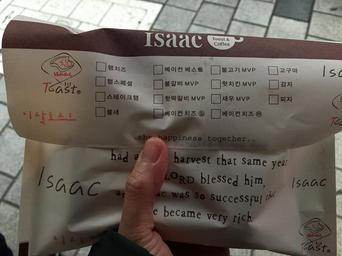 Isaac Toast & Coffee
햄치즈 베이컨 베스트 불고기 MVP 고구마
햄스페셜 불갈비 MVP 핫치킨 MVP 감자
스테이크햄 핫떡갈비 MVP 새우 MVP 피자
불새 베이컨 치즈 베이컨 치즈
Toast
이삭토스트
Isa
share happiness together..
had a harvest that same year
LORD blessed him,
Isaac was so successful that
became very rich
Isaac
Isaac